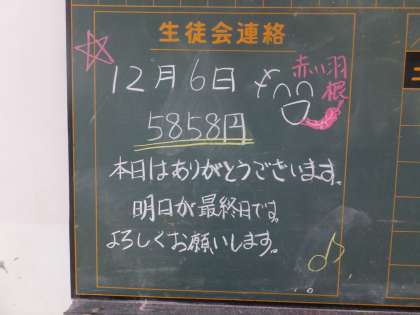 生徒会連絡
12月6日
赤い羽
根
5858円
本日はありがとうございます。
明日が最終日です。
よろしくお願いします。